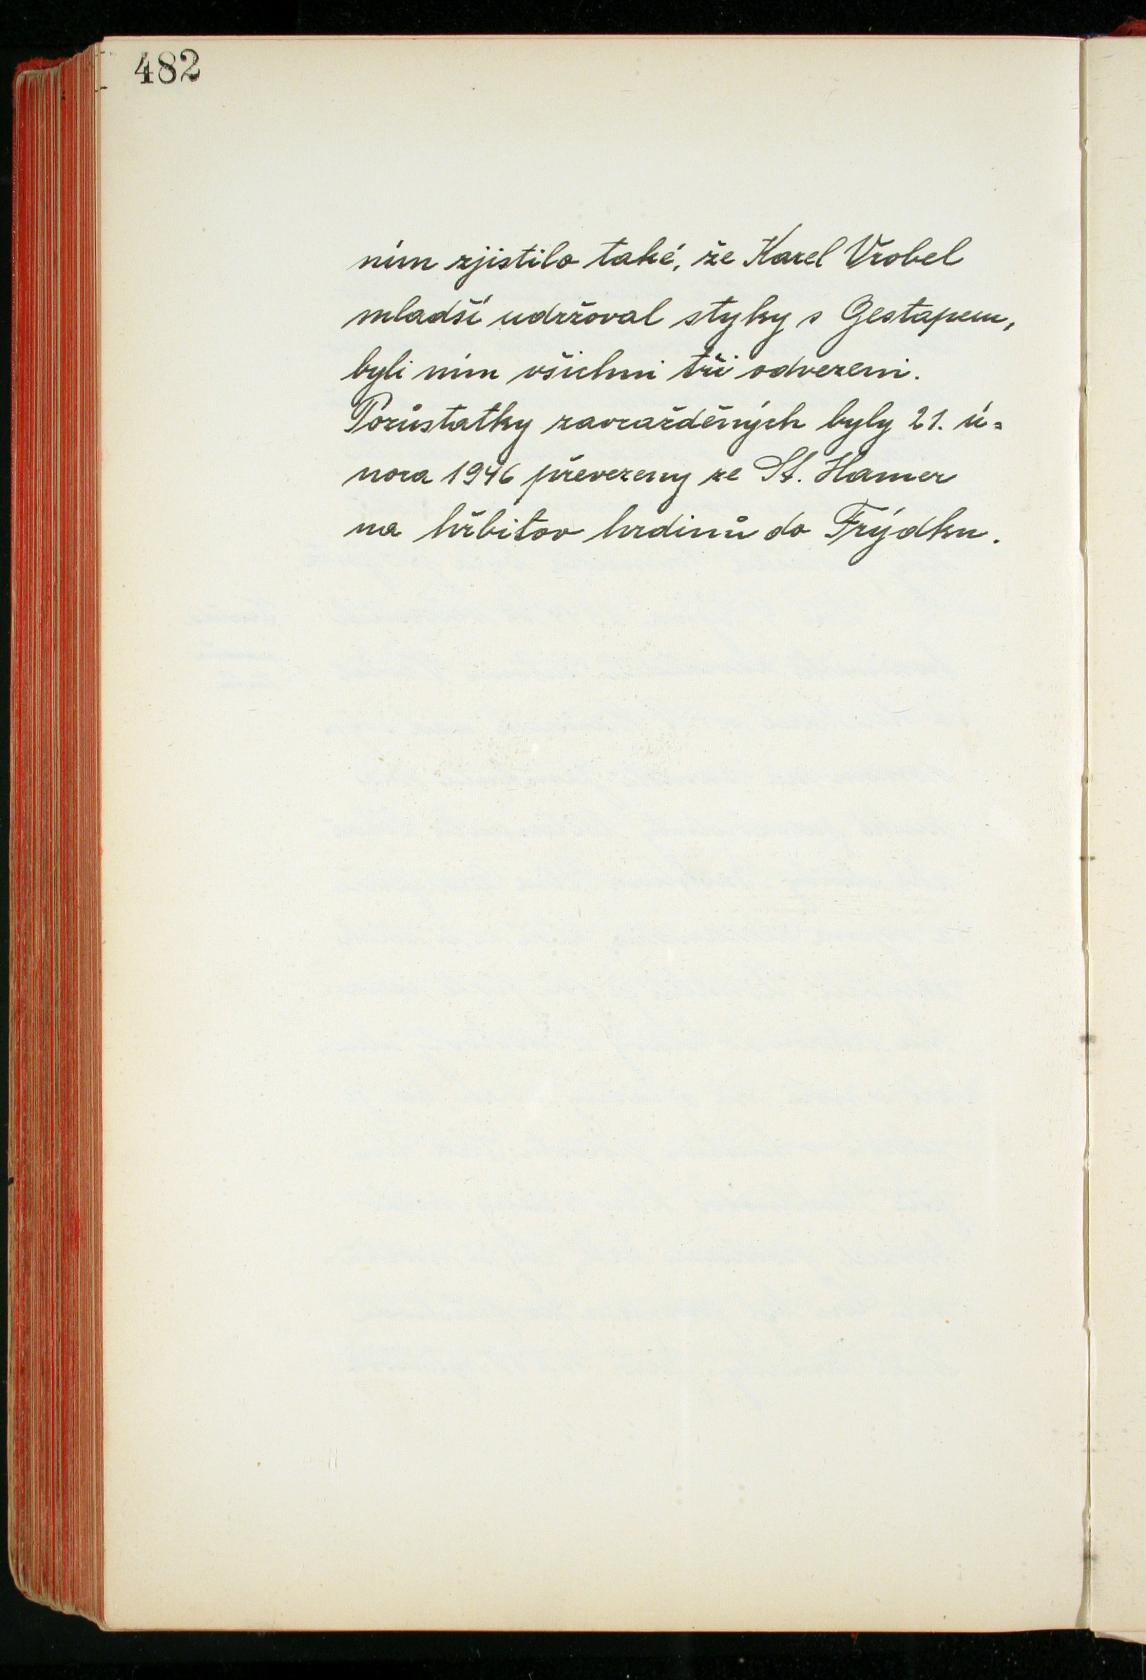 482
ním zjistilo také, že Karel Vrobel
mladší udržoval styky s Gestapem,
byli ním všichni tři odvezeni.
Pozůstatky zavražděných byly 21. ú=
nora 1946 převezeny ze St. Hamer
na hřbitov hrdinů do Frýdku.